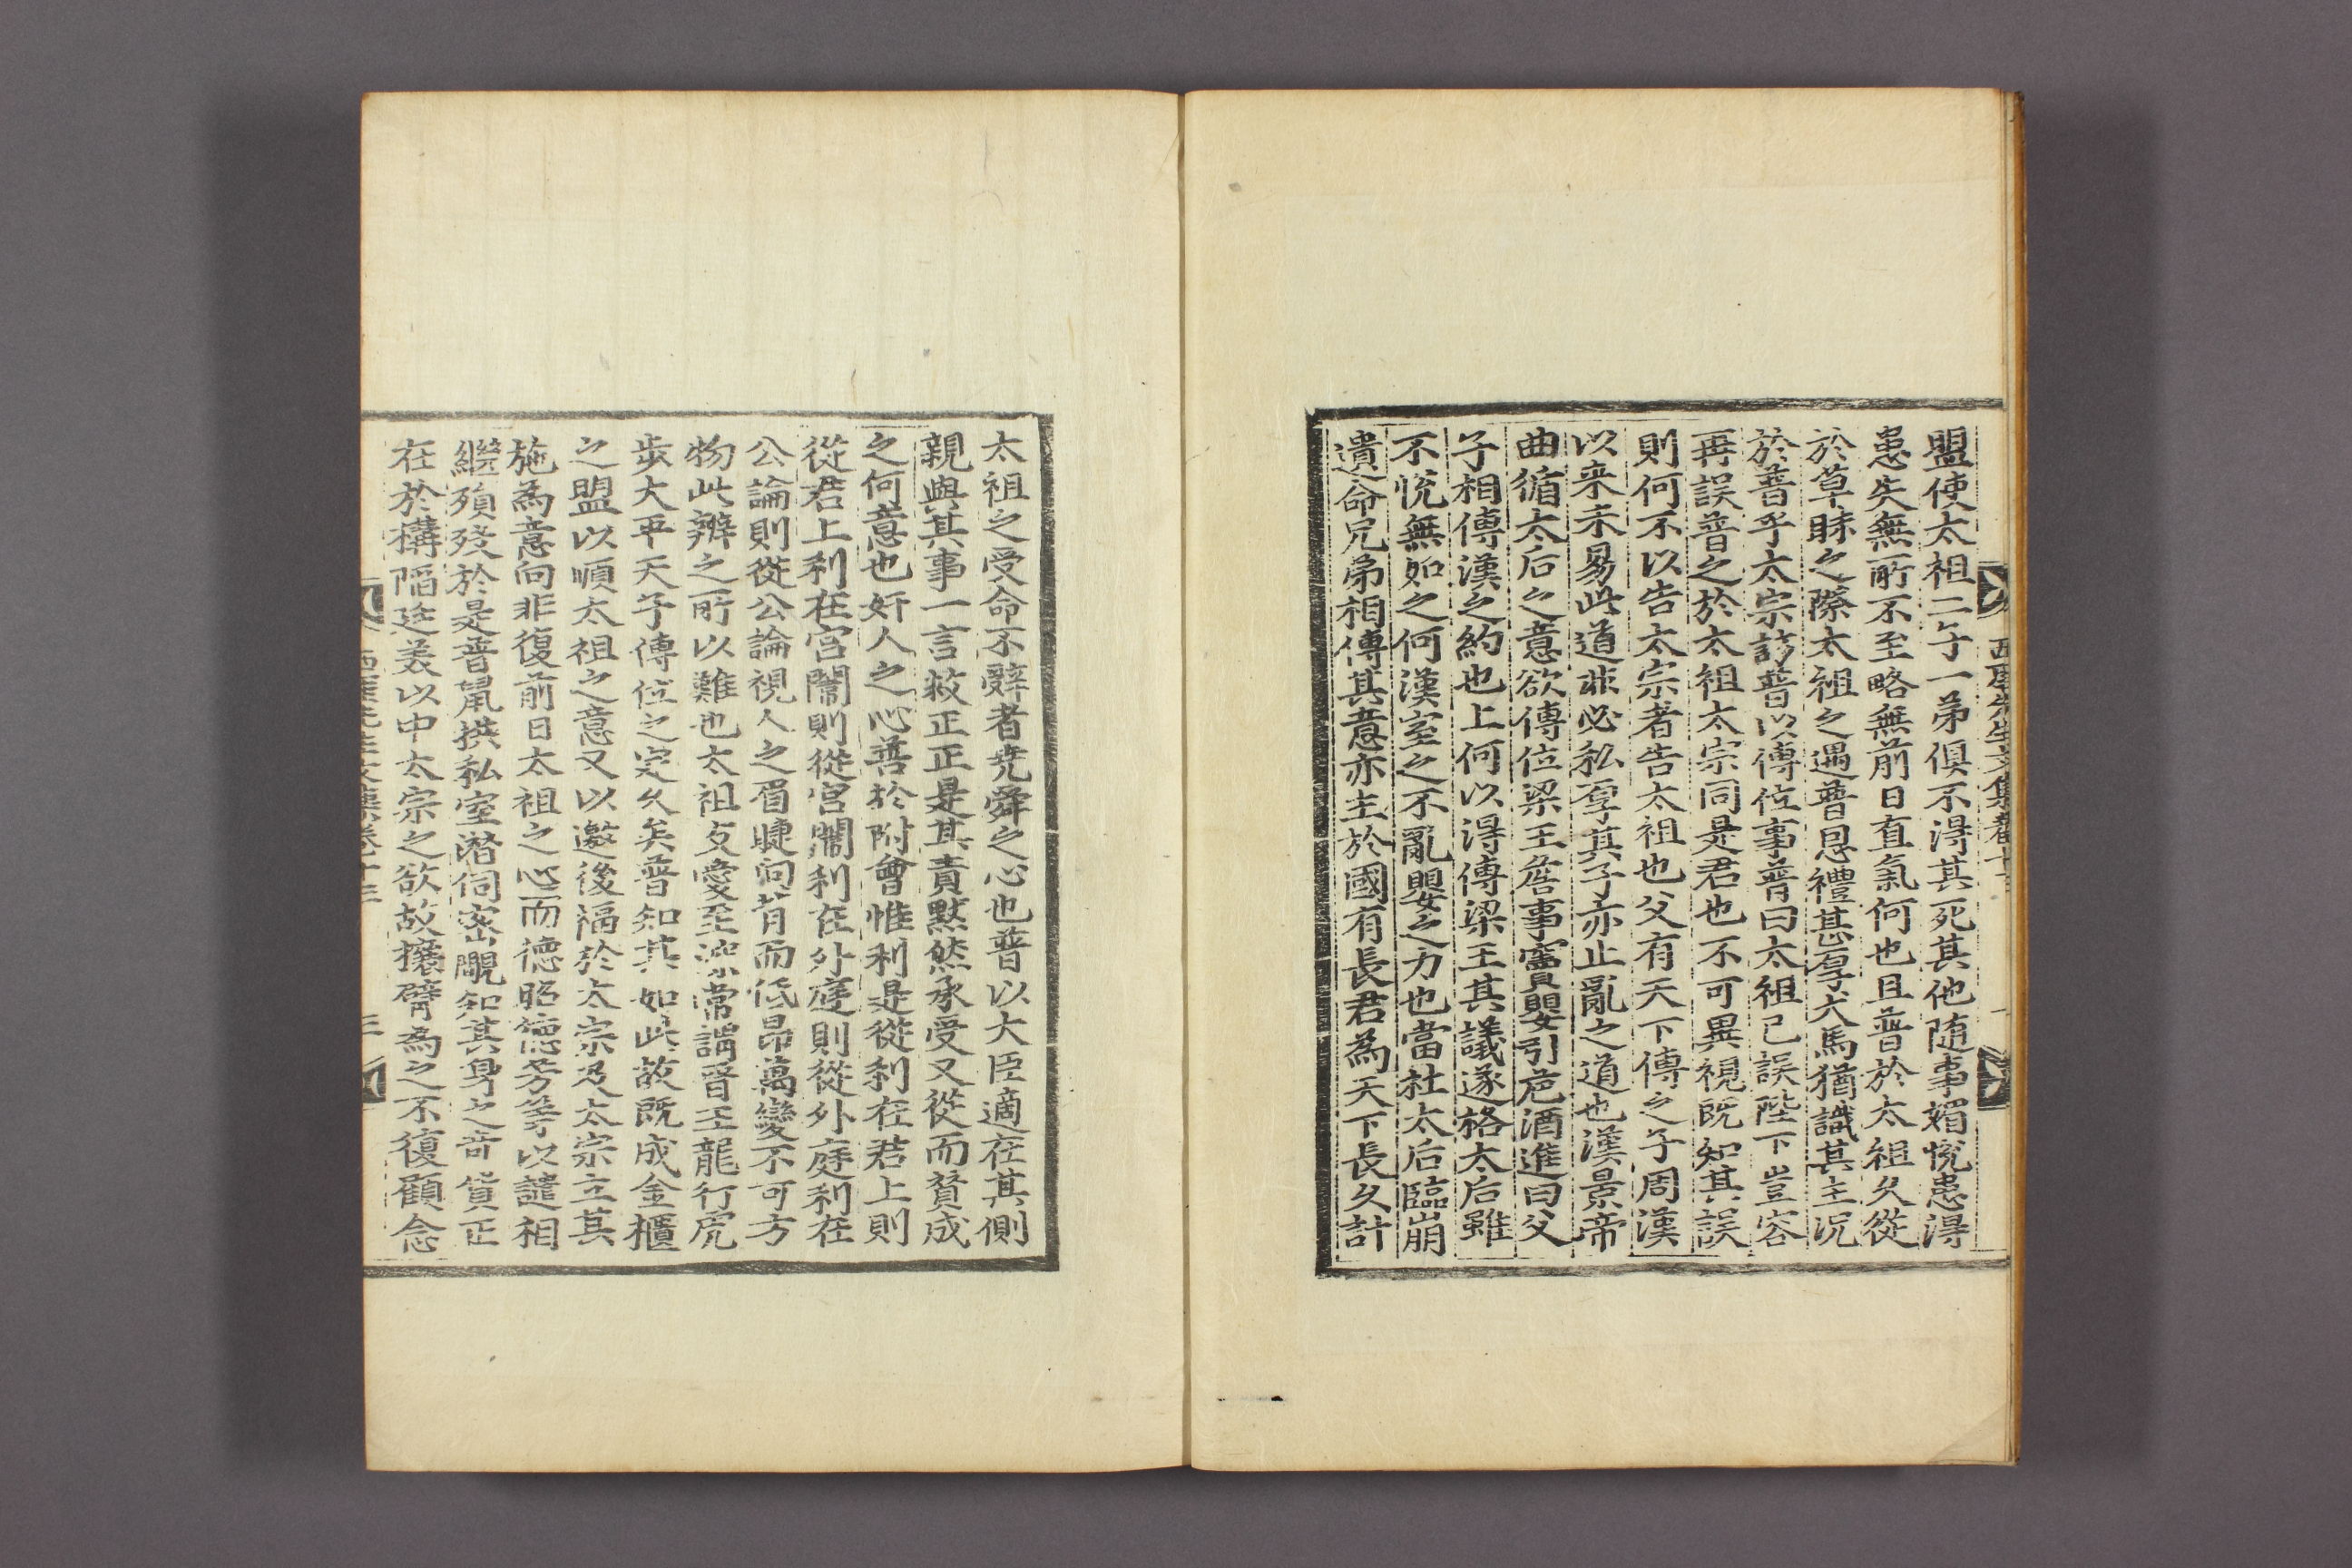 盟使太祖二子一弟俱不得其死其他随事媚悅患得
患失無所不至略無前日直氣何也且普於太祖久從
於草昧之際太祖之遇普恩禮甚厚犬馬猶識其主况
於普乎太宗訪普以傳位事普曰太祖已誤陛下豈容
再誤普之於太祖太宗同是君也不可異視既知其誤
則何不以告太宗者告太祖也父有天下傳之子周漢
以来未易此道非必私厚其子亦止亂之道也漢景帝
曲循太后之意欲傳位梁王詹事竇嬰引巵酒進曰父
子相傳漢之約也上何以得傳梁王其議遂格太后雖
不悅無如之何漢室之不亂嬰之力也當杜太后臨崩
遺命兄弟相傳其意亦主於國有長君為天下長久計
西厓先生文集卷十
太祖之受命不辭者堯舜之心也普以大臣適在其側
親與其事一言救正正是其責默然承受又從而贊成
之何意也奸人之心善於附會惟利是從利在君上則
從君上利在宮闈則從宮闈利在外庭則從外庭利在
公論則從公論視人之眉睫向背而低昂萬變不可方
物此辨之所以難也太祖友愛至深常謂晋王龍行虎
步太平天子傳位之定久矣普知其如此故既成金櫃
之盟以順太祖之意又以邀後福於太宗及太宗立其
施為意向非復前日太祖之心而德昭德芳等以讉相
繼殞殁於是普鼠拱私室潜伺密覵知其身之奇貨正
在於構陷廷美以中太宗之欲故攘臂為之不復顧念
西厓先生文集卷十三 三